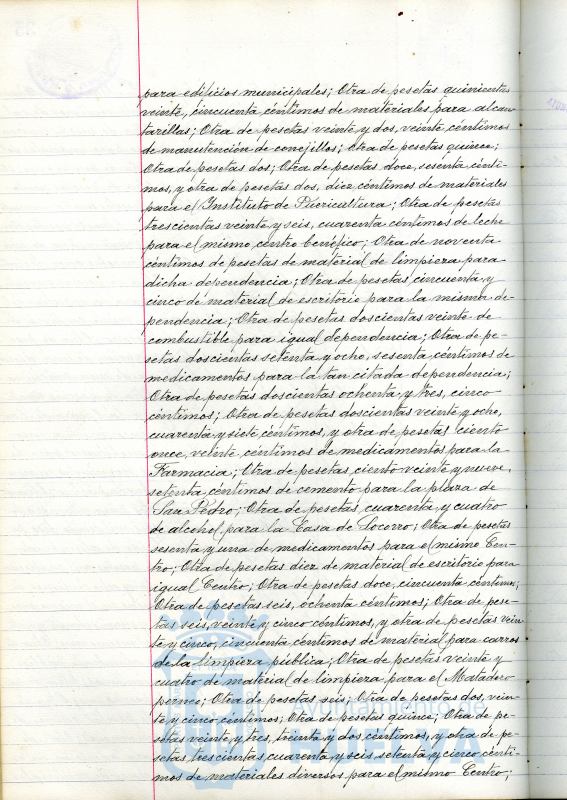 para edificios municipales; Otra de pesetas quinientas
veinte, cincuenta céntimos de materiales para alcan-
tarillas; Otra de pesetas veinte y dos, veinte céntimos
de manutención de conejillos; Otra de pesetas quince;
Otra de pesetas dos; Otra de pesetas doce, sesenta cénti-
mos, y otra de pesetas dos, diez céntimos de materiales
para el Instituto de Puericultura; Otra de pesetas
trescientas veinte y seis, cuarenta céntimos de leche
para el mismo centro benéfico; Otra de noventa
céntimos de pesetas de material de limpieza para
dicha dependencia; Otra de pesetas cincuenta y
cinco de material de escritorio para la misma de-
pendencia; Otra de pesetas doscientas veinte de
combustible para igual dependencia; Otra de pe-
setas doscientas setenta y ocho, sesenta céntimos de
medicamentos para la tan citada dependencia;
Otra de pesetas doscientas ochenta y tres, cinco
céntimos; Otra de pesetas doscientas veinte y ocho,
cuarenta y siete céntimos, y otra de pesetas ciento
once, veinte céntimos de medicamentos para la
Farmacia; Otra de pesetas ciento veinte y nueve,
setenta céntimos de cemento para la plaza de
San Pedro; Otra de pesetas cuarenta y cuatro
de alcohol para la Casa de Socorro; Otra de pesetas
sesenta y una de medicamentos para el mismo Cen-
tro; Otra de pesetas diez de material de escritorio para
igual Centro; Otra de pesetas doce, cincuenta céntimos;
Otra de pesetas seis, ochenta céntimos; Otra de pese-
tas seis, veinte y cinco céntimos, y otra de pesetas vein-
te y cinco, cincuenta céntimos de material para carros
de la limpieza pública; Otra de pesetas veinte y
cuatro de material de limpieza para el Matadero
perneo; Otra de pesetas seis; Otra de pesetas dos, vein-
te y cinco céntimos; Otra de pesetas quince; Otra de pe-
setas veinte y tres, treinta y dos céntimos, y otra de pe-
setas trescientas cuarenta y seis, setenta y cinco cénti-
mos de materiales diversos para el mismo Centro;
Ayuntamiento de